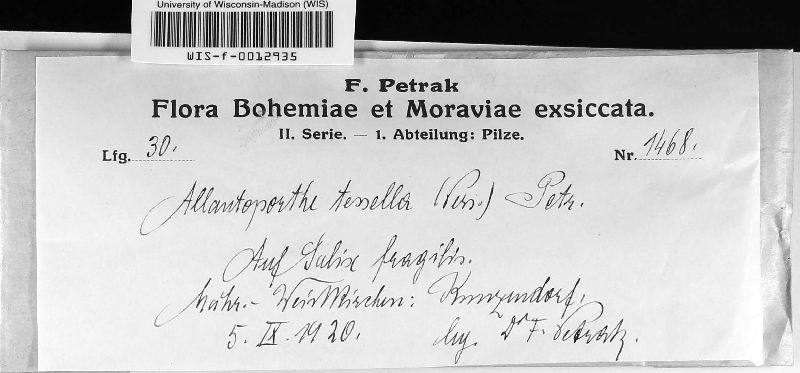 University of Wisconsin-Madison (WIS)
WIS-f-0012935
F. Petrak
Flora Bohemiae et Moraviae exsiccata.
II. Serie. — 1. Abteilung: Pilze.
Lfg. 30. Nr. 1468.
Allantoporthe tessella (Pers.) Petr.
Auf Salix fragilis.
Mähr.-Weisskirchen: Kunzendorf,
5. IX. 1920. leg. Dr F. Petrak.